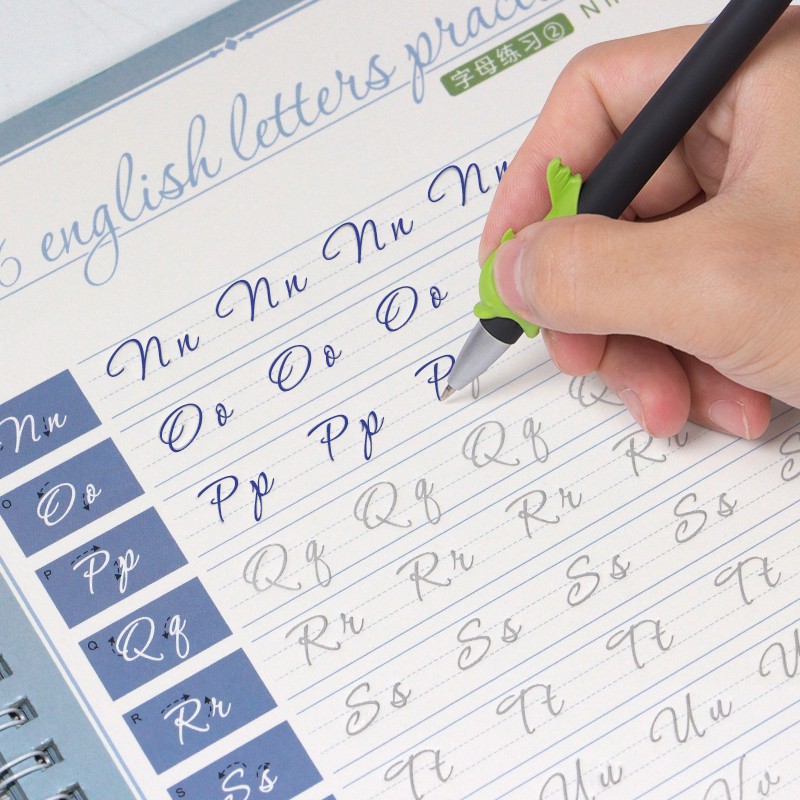 6 english letters
字母练习②
Nn Nn Nn Nn
N Nn
Oo Oo Oo
O Oo
Pp Pp P
P Pp
Qq Qq Qq
Q Qq
Rr Rr Rr Rr
R Rr
Ss Ss Ss
S Ss
Tt Tt Tt Tt
Uu Uu